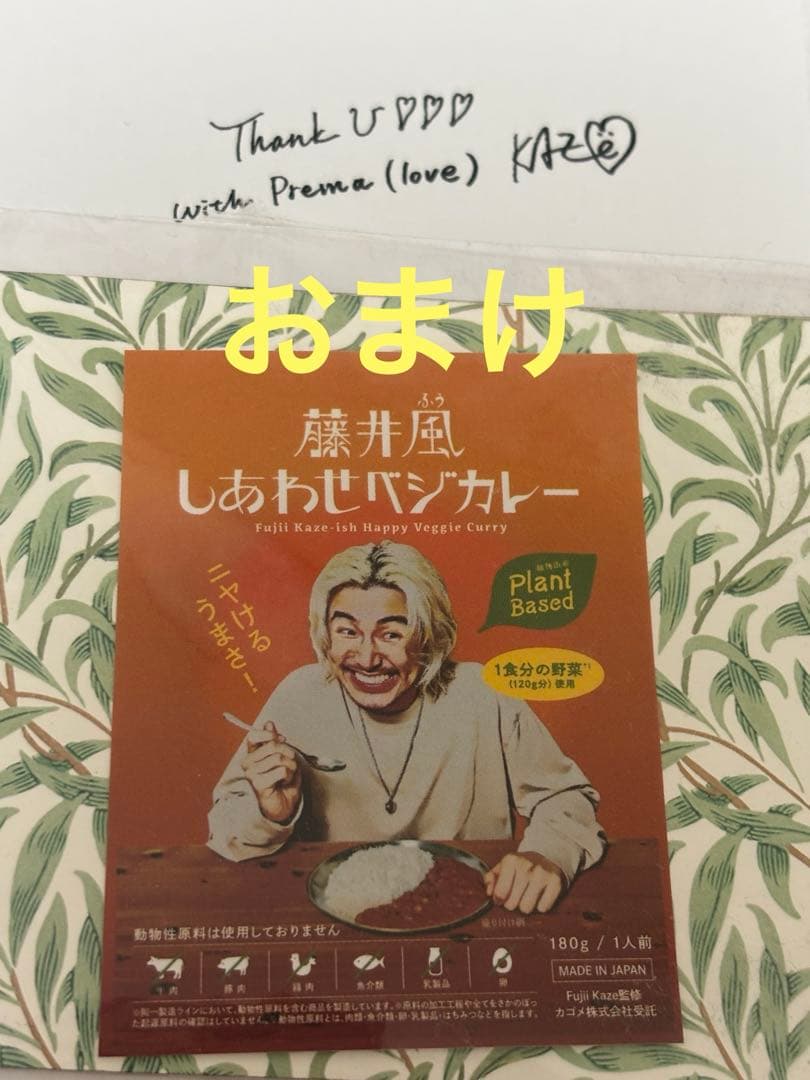 Thank U♡♡♡
with Prema (love) KAZë
おまけ
ふう
藤井風
しあわせベジカレー
Fujii Kaze-ish Happy Veggie Curry
ニヤける
うまさ!
Plant
Based
1食分の野菜*1
(120g分)使用
動物性原料は使用しておりません
豚肉
鶏肉
魚介類
乳製品
卵
180g / 1人前
MADE IN JAPAN
Fujii Kaze監修
カゴメ株式会社受託
※同一製造ラインにおいて、動物性原料を含む商品を製造しています。※原料の加工工程や全てをさかのぼっ
た起源原料の確認はしていません。 動物性原料とは、肉類・魚介類・卵・乳製品・はちみつなどを指します。